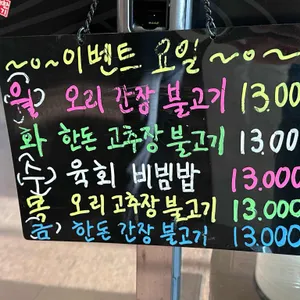 ~о~이벤트 요일~о~
(월) 오리 간장 불고기 13.00
화 한돈 고추장 불고기 13.00
(수) 육회 비빔밥 13.000
(목) 오리 고추장 불고기 13.000
(금) 한돈 간장 불고기 13.000